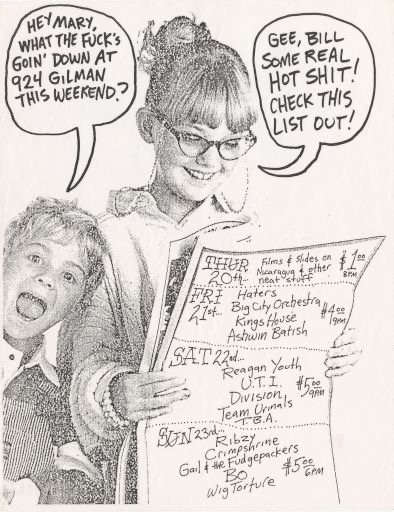 HEY MARY,
WHAT THE FUCK'S
GOIN' DOWN AT
924 GILMAN
THIS WEEKEND?
GEE, BILL
SOME REAL
HOT SHIT!
CHECK THIS
LIST OUT!
THUR
20th...
Films & Slides on
Nicaragua & other
neat stuff
$1.00
8PM
FRI
21st...
Haters
Big City Orchestra
Kings House
Ashwin Batish
$4.00
9PM
SAT 22nd...
Reagan Youth
U.T.I.
Division,
Team Urinals
T.B.A.
$5.00
9PM
SUN 23rd...
Ribzy
Crimpshrine
Gail & the Fudgepackers
BO
Wig Torture
$5.00
6PM